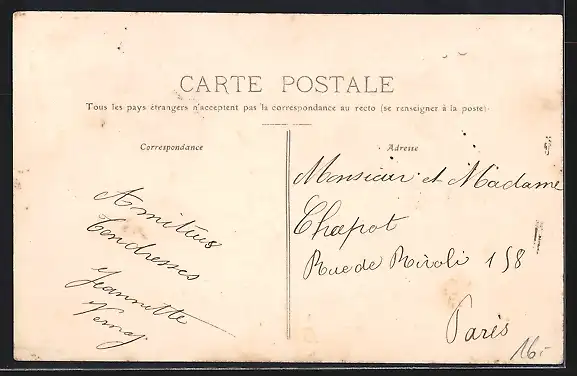 CARTE POSTALE
Tous les pays étrangers n'acceptent pas la correspondance au recto (se renseigner à la poste).
Correspondance
Amitius
Tendresses
Jeannette
Adresse
Monsieur et Madame
Chapot
Rue de Rivoli 158
Paris
16.-